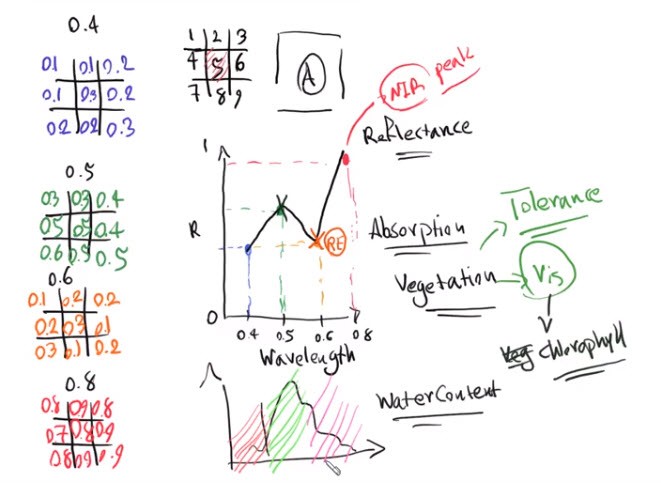 0.4
0.1 0.1 0.2
0.1 0.3 0.2
0.2 0.2 0.3
0.5
03 03 0.4
0.5 0.5 0.4
0.6 0.5 0.5
0.6
0.1 0.2 0.2
0.2 0.3 0.1
03 0.1 0.2
0.8
0.8 09 0.8
0.7 0.8 09
0.8 09 0.9
1 2 3
4 5 6
7 8 9
A
NIR peak
Reflectance
1
R
0
RE
0.4 0.5 0.6 0.8
Wavelength
Absorption
Vegetation
Tolerance
Vis
Veg Chlorophyll
Water Content